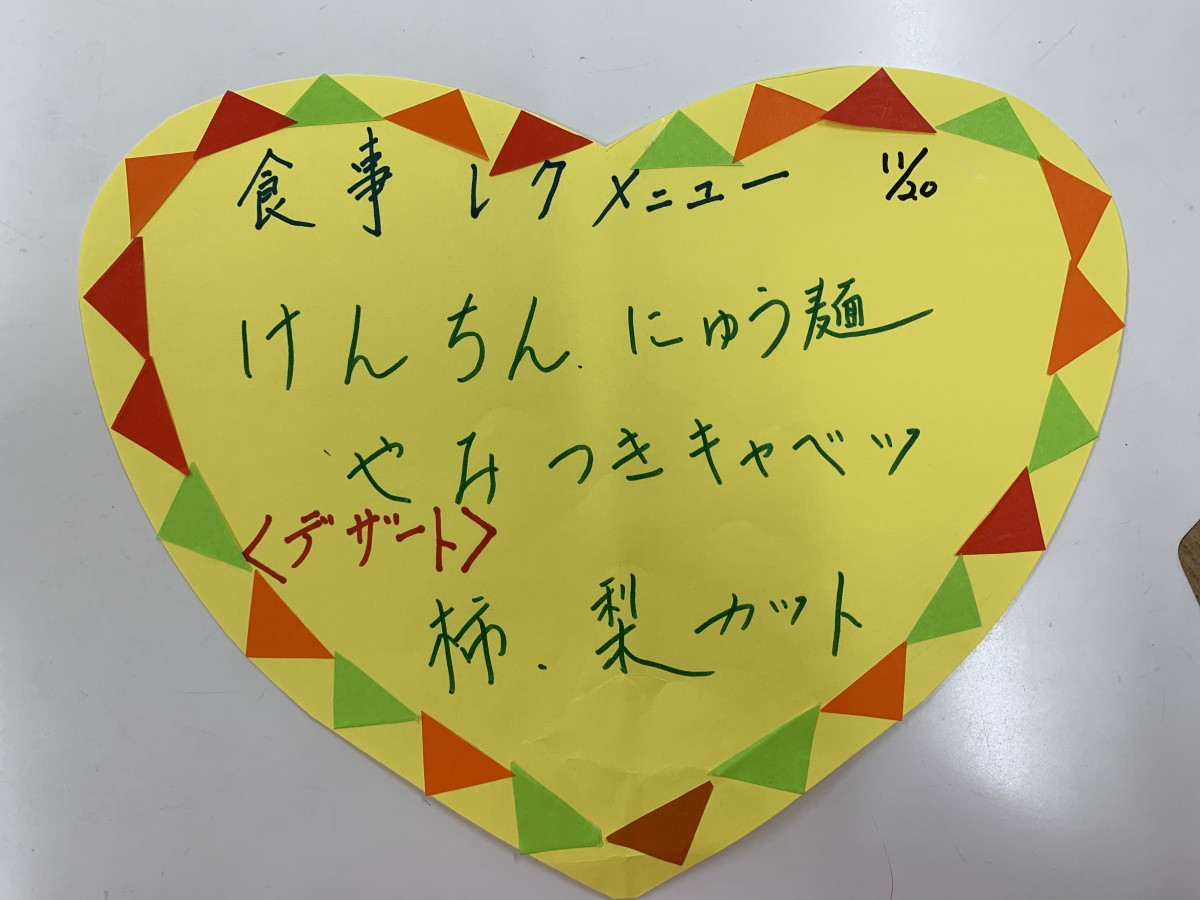 食事レクメニュー 11/20
けんちん.にゅう麺
やみつきキャベツ
<デザート>
柿.梨カット